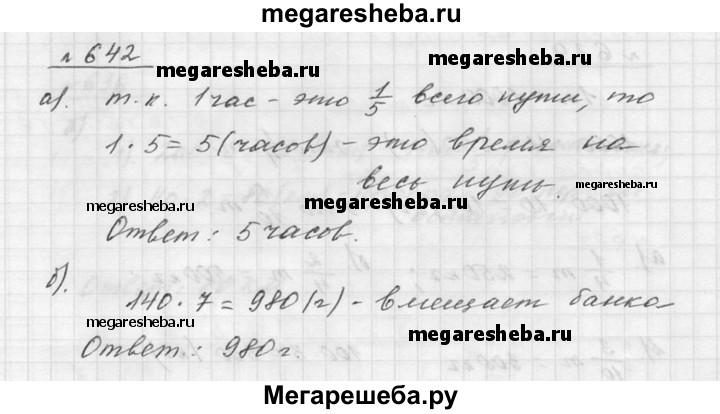 megaresheba.ru
№ 642
megaresheba.ru
megaresheba.ru
а). т.к. 1 час - это 1/5 всего пути, то
1 · 5 = 5 (часов) - это время на
весь путь.
megaresheba.ru
megaresheba.ru
Ответ: 5 часов.
б).
140 · 7 = 980 (г) - вмещает банка
megaresheba.ru
megaresheba.ru
Ответ: 980 г.
Мегарешеба.ру